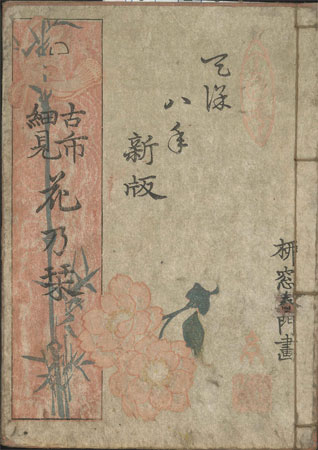 柳窓春門畫
天保
八年
新版
古市
細見
花乃栞